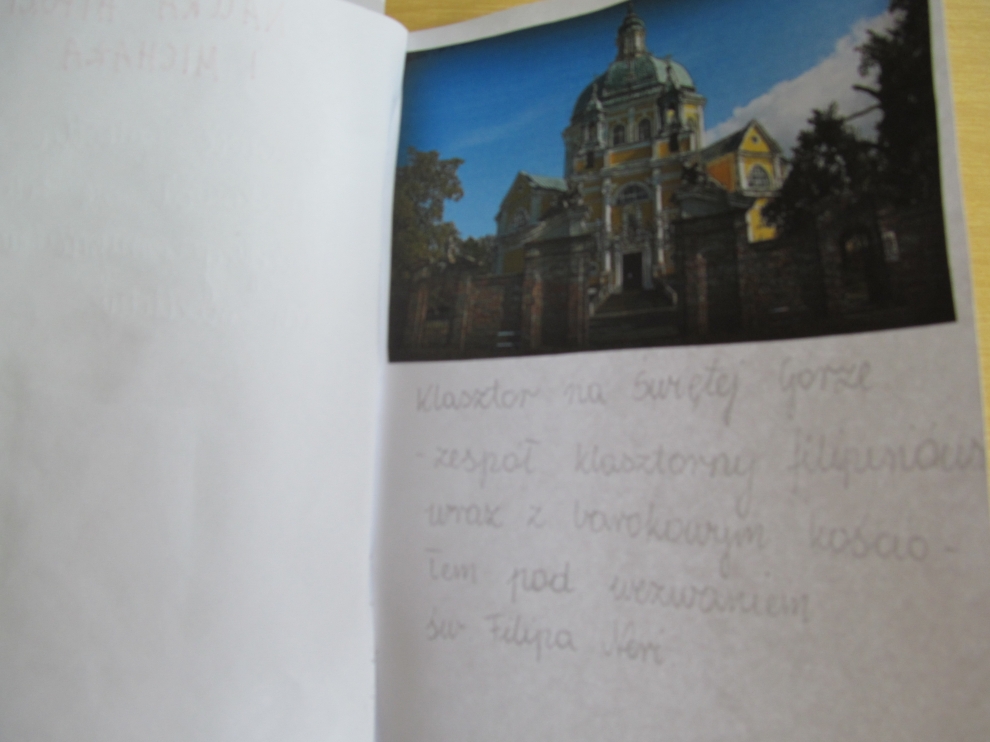 Klasztor na Świętej Górze
- zespół klasztorny filipinów
wraz z barokowym kościo-
łem pod wezwaniem
św Filipa Neri